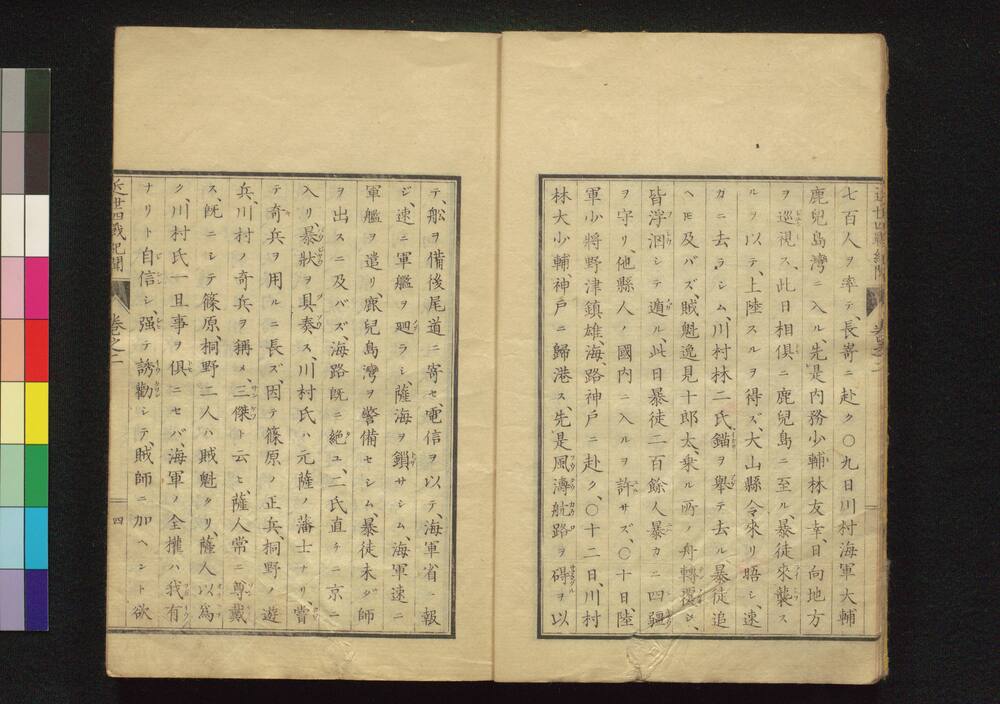 七百人ヲ率テ、長崎ニ赴ク〇九日川村海軍大輔
鹿兒島灣ニ入ル、先是内務少輔林友幸、日向地方
ヲ巡視ス、此日相倶ニ鹿兒島ニ至ル、暴徒來襲ス
ルヲ以テ、上陸スルヲ得ズ、大山縣令來リ晤シ、速
カニ去ラシム、川村林二氏錨ヲ舉テ去ル暴徒追
ヘ𪜈及バズ、賊魁逸見十郎太、乘ル所ノ舟轉覆シ、
皆浮泅シテ遁ル、此日暴徒二百餘人暴カニ四疆
ヲ守リ、他縣人ノ國内ニ入ルヲ許サズ、〇十日、陸
軍少將野津鎮雄、海路神戸ニ赴ク、〇十二日、川村
林大少輔、神戸ニ歸港ス、先是風濤航路ヲ碍ヲ以
テ、舩ヲ備後尾道ニ寄セ、電信ヲ以テ、海軍省ニ報
ジ、速ニ軍艦ヲ廻ラシ、薩海ヲ鎖サシム、海軍速ニ
軍艦ヲ遣リ、鹿兒島灣ヲ警備セシム、暴徒未ダ師
ヲ出スニ及バズ、海路既ニ絶ユ、二氏直チニ京ニ
入リ暴狀ヲ具奏ス、川村氏ハ元薩ノ藩士ナリ、嘗
テ奇兵ヲ用ルニ長ズ、因テ篠原ノ正兵、桐野ノ遊
兵、川村ノ奇兵ヲ稱メ、三傑ト云ヒ、薩人常ニ尊戴
ス、既ニシテ篠原、桐野二人ハ賊魁タリ、薩人以爲
ク、川村氏一旦事ヲ倶ニセバ、海軍ノ全權ハ我有
ナリト自信シ、强テ誘勸シテ、賊師ニ加ヘント欲
近世四戰紀聞
卷之一
四